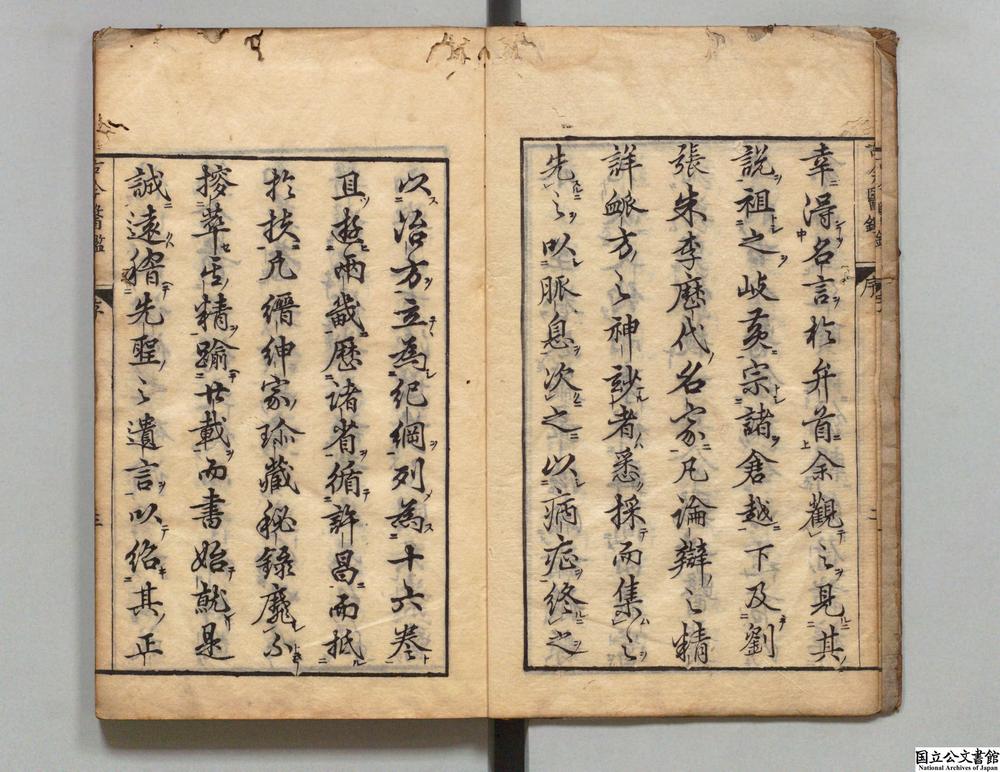 幸得名言於弁首余観之見其
説祖之岐黄宗諸倉越下及劉
張朱李歴代名家凡論辯之精
詳䘑方之神訬者悉採而集之
先之以脈息次之以病症終之
以治方立為紀綱列為十六巻
且遊両載歴諸省循許昌而抵
於扶凡縉紳家珎蔵秘録靡不
搜萃其精踰廿載而書始就是
誠遠稽先聖之遺言以紹其正
古今醫鑑
序
二
古今醫鑑
序
三
国立公文書館
National Archives of Japan